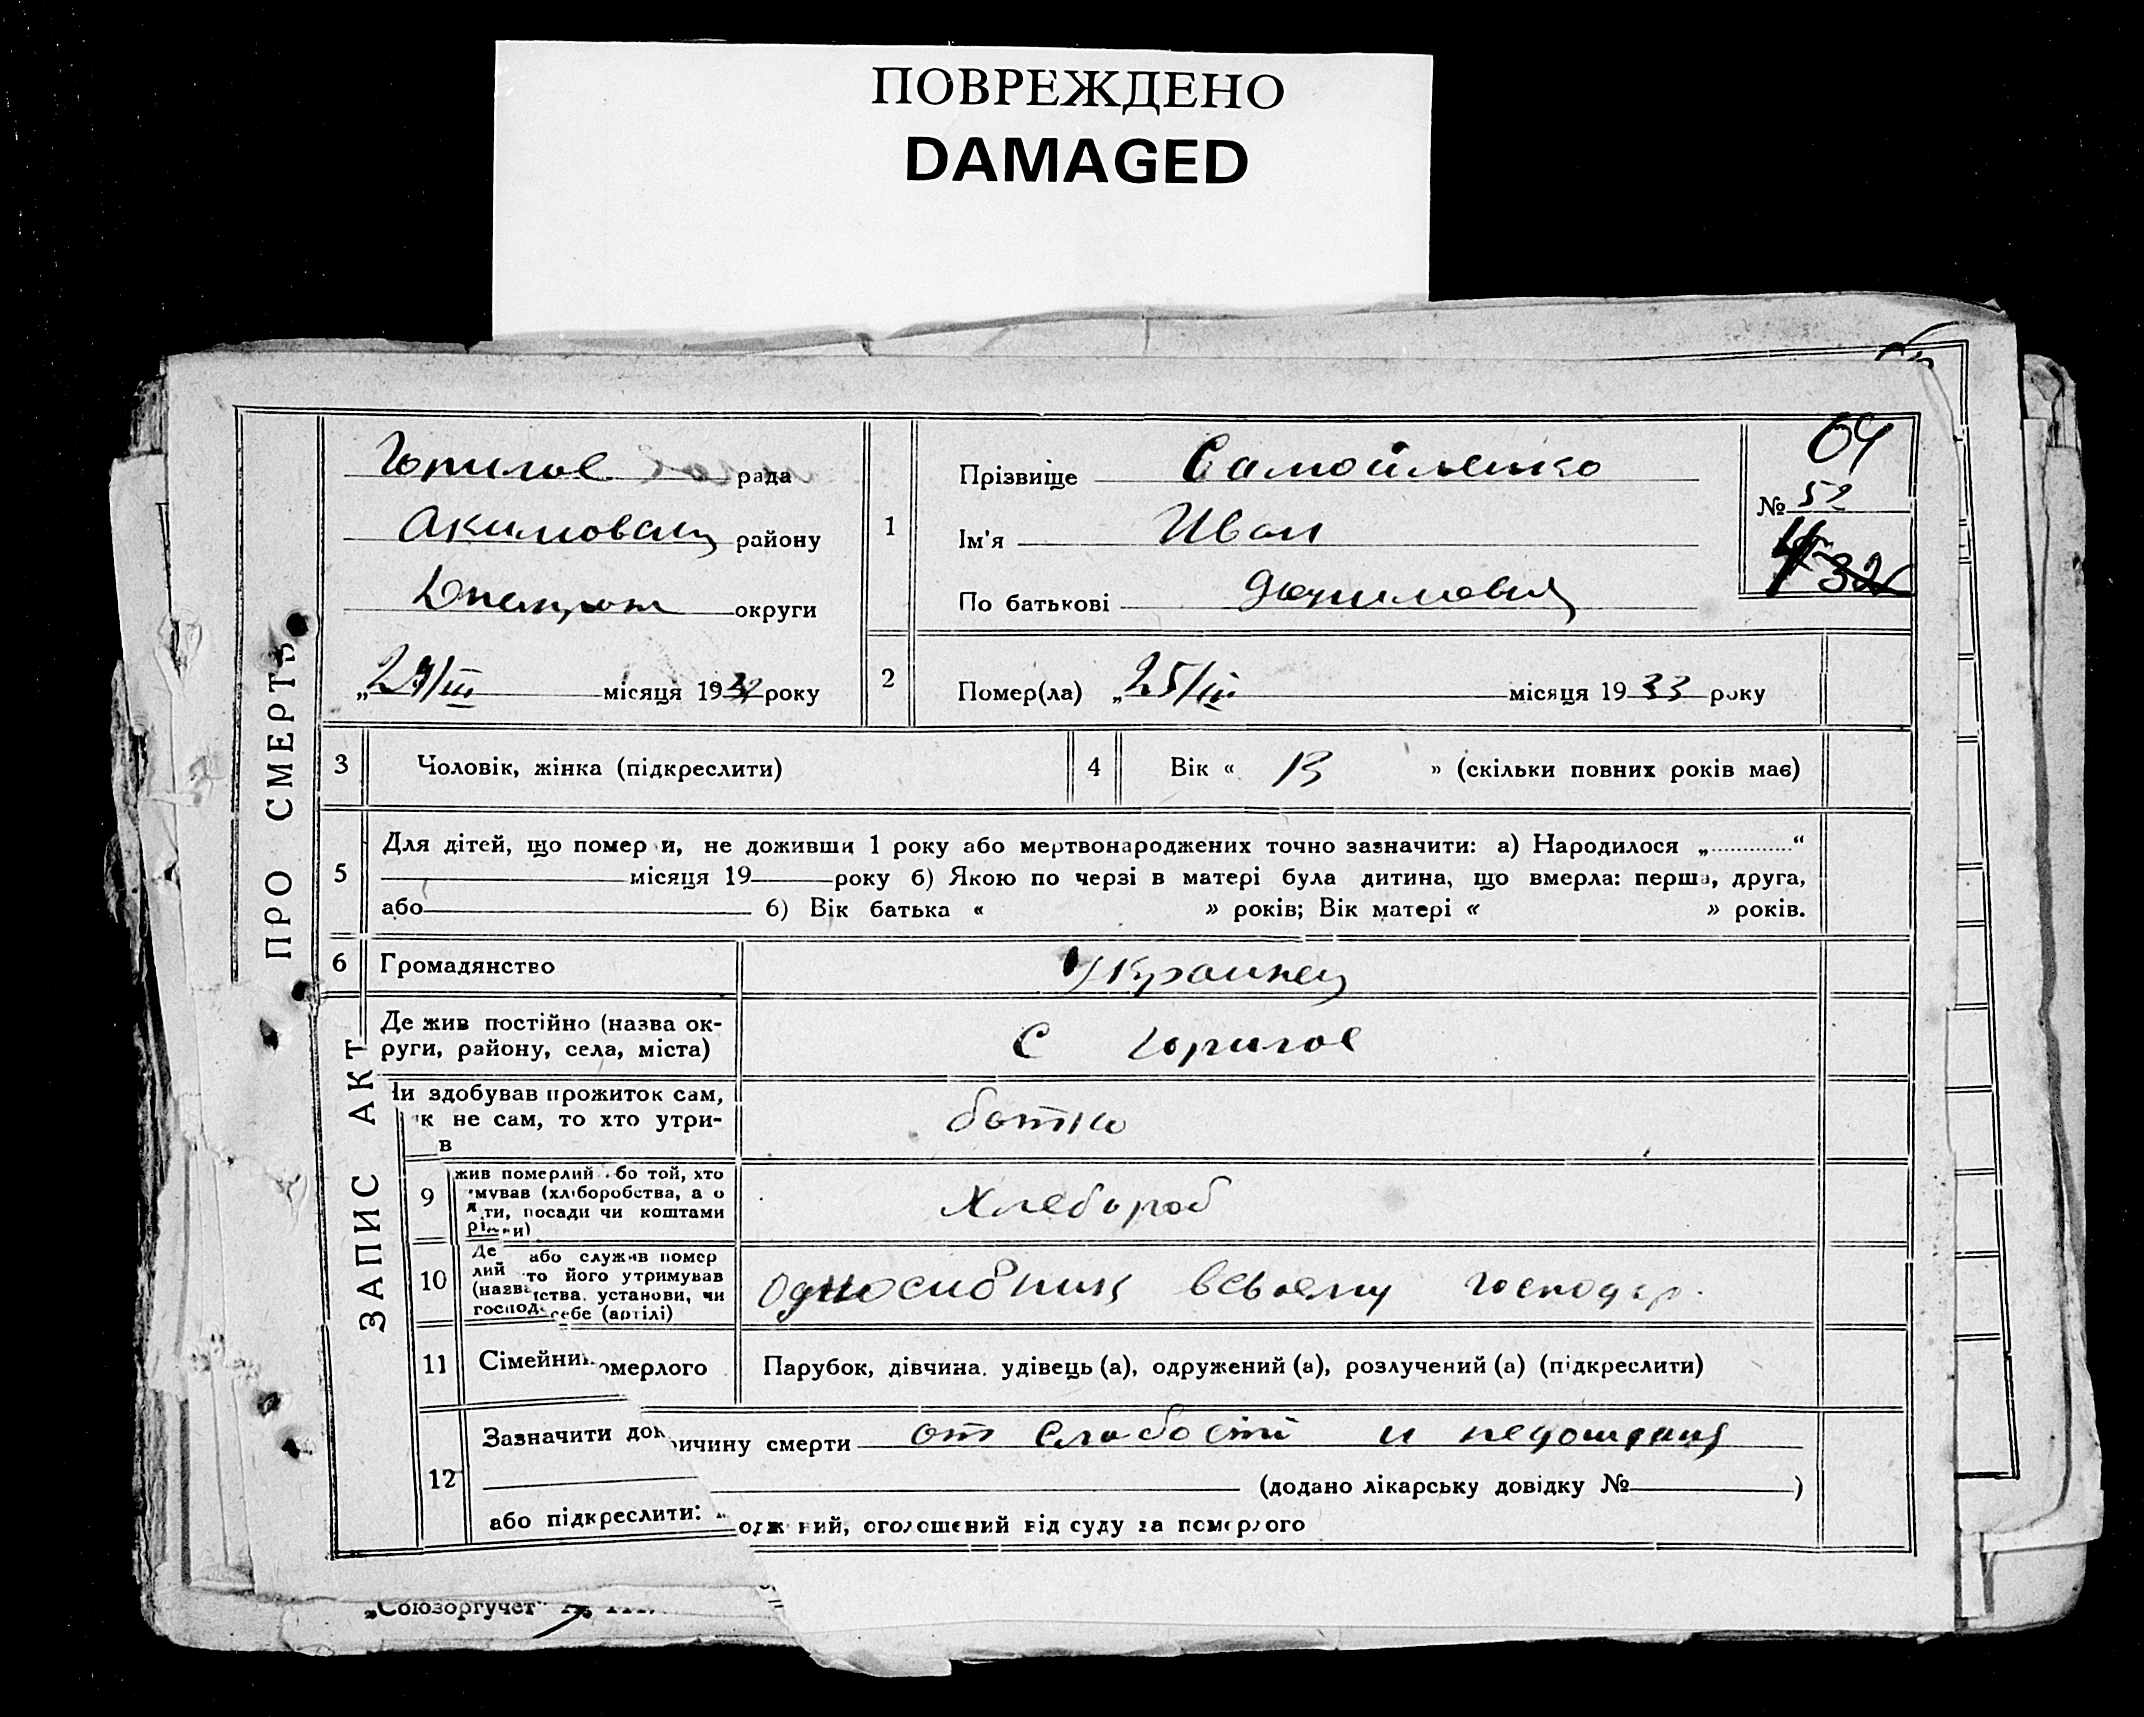 ПОВРЕЖДЕНО
DAMAGED
ЗАПИС АКТ ПРО СМЕРТЬ
рада
району
округи
„29/III місяця 19 року
1
Прізвище Самойленко
Ім'я Иван
По батькові
04
№ 52
32
2
Помер(ла) „25/III місяця 1933 року
3
Чоловік, жінка (підкреслити)
4
Вік « 13 » (скільки повних років має)
5
Для дітей, що помер и, не доживши 1 року або мертвонароджених точно зазначити: а) Народилося „ “
місяця 19 року б) Якою по черзі в матері була дитина, що вмерла: перша, друга,
або б) Вік батька « » років; Вік матері « » років.
6
Громадянство
Украинец
Де жив постійно (назва ок-
руги, району, села, міста)
С
и здобував прожиток сам,
к не сам, то хто утри-
в
батко
9
жив померлий бо той, хто
мував (хліборобства, а о
ти, посади чи коштами
хлебороб
10
Де або служив помер
лий то його утримував
(назва ства, установи, чи
господ себе (артілі)
односибник в своему господар.
11
Сімейний омерлого
Парубок, дівчина, удівець (а), одружений (а), розлучений (а) (підкреслити)
12
Зазначити док ричину смерти от слабости и недоедания
(додано лікарську довідку № )
або підкреслити: одж ний, оголошений від суду за померлого
„Союзоргучет“